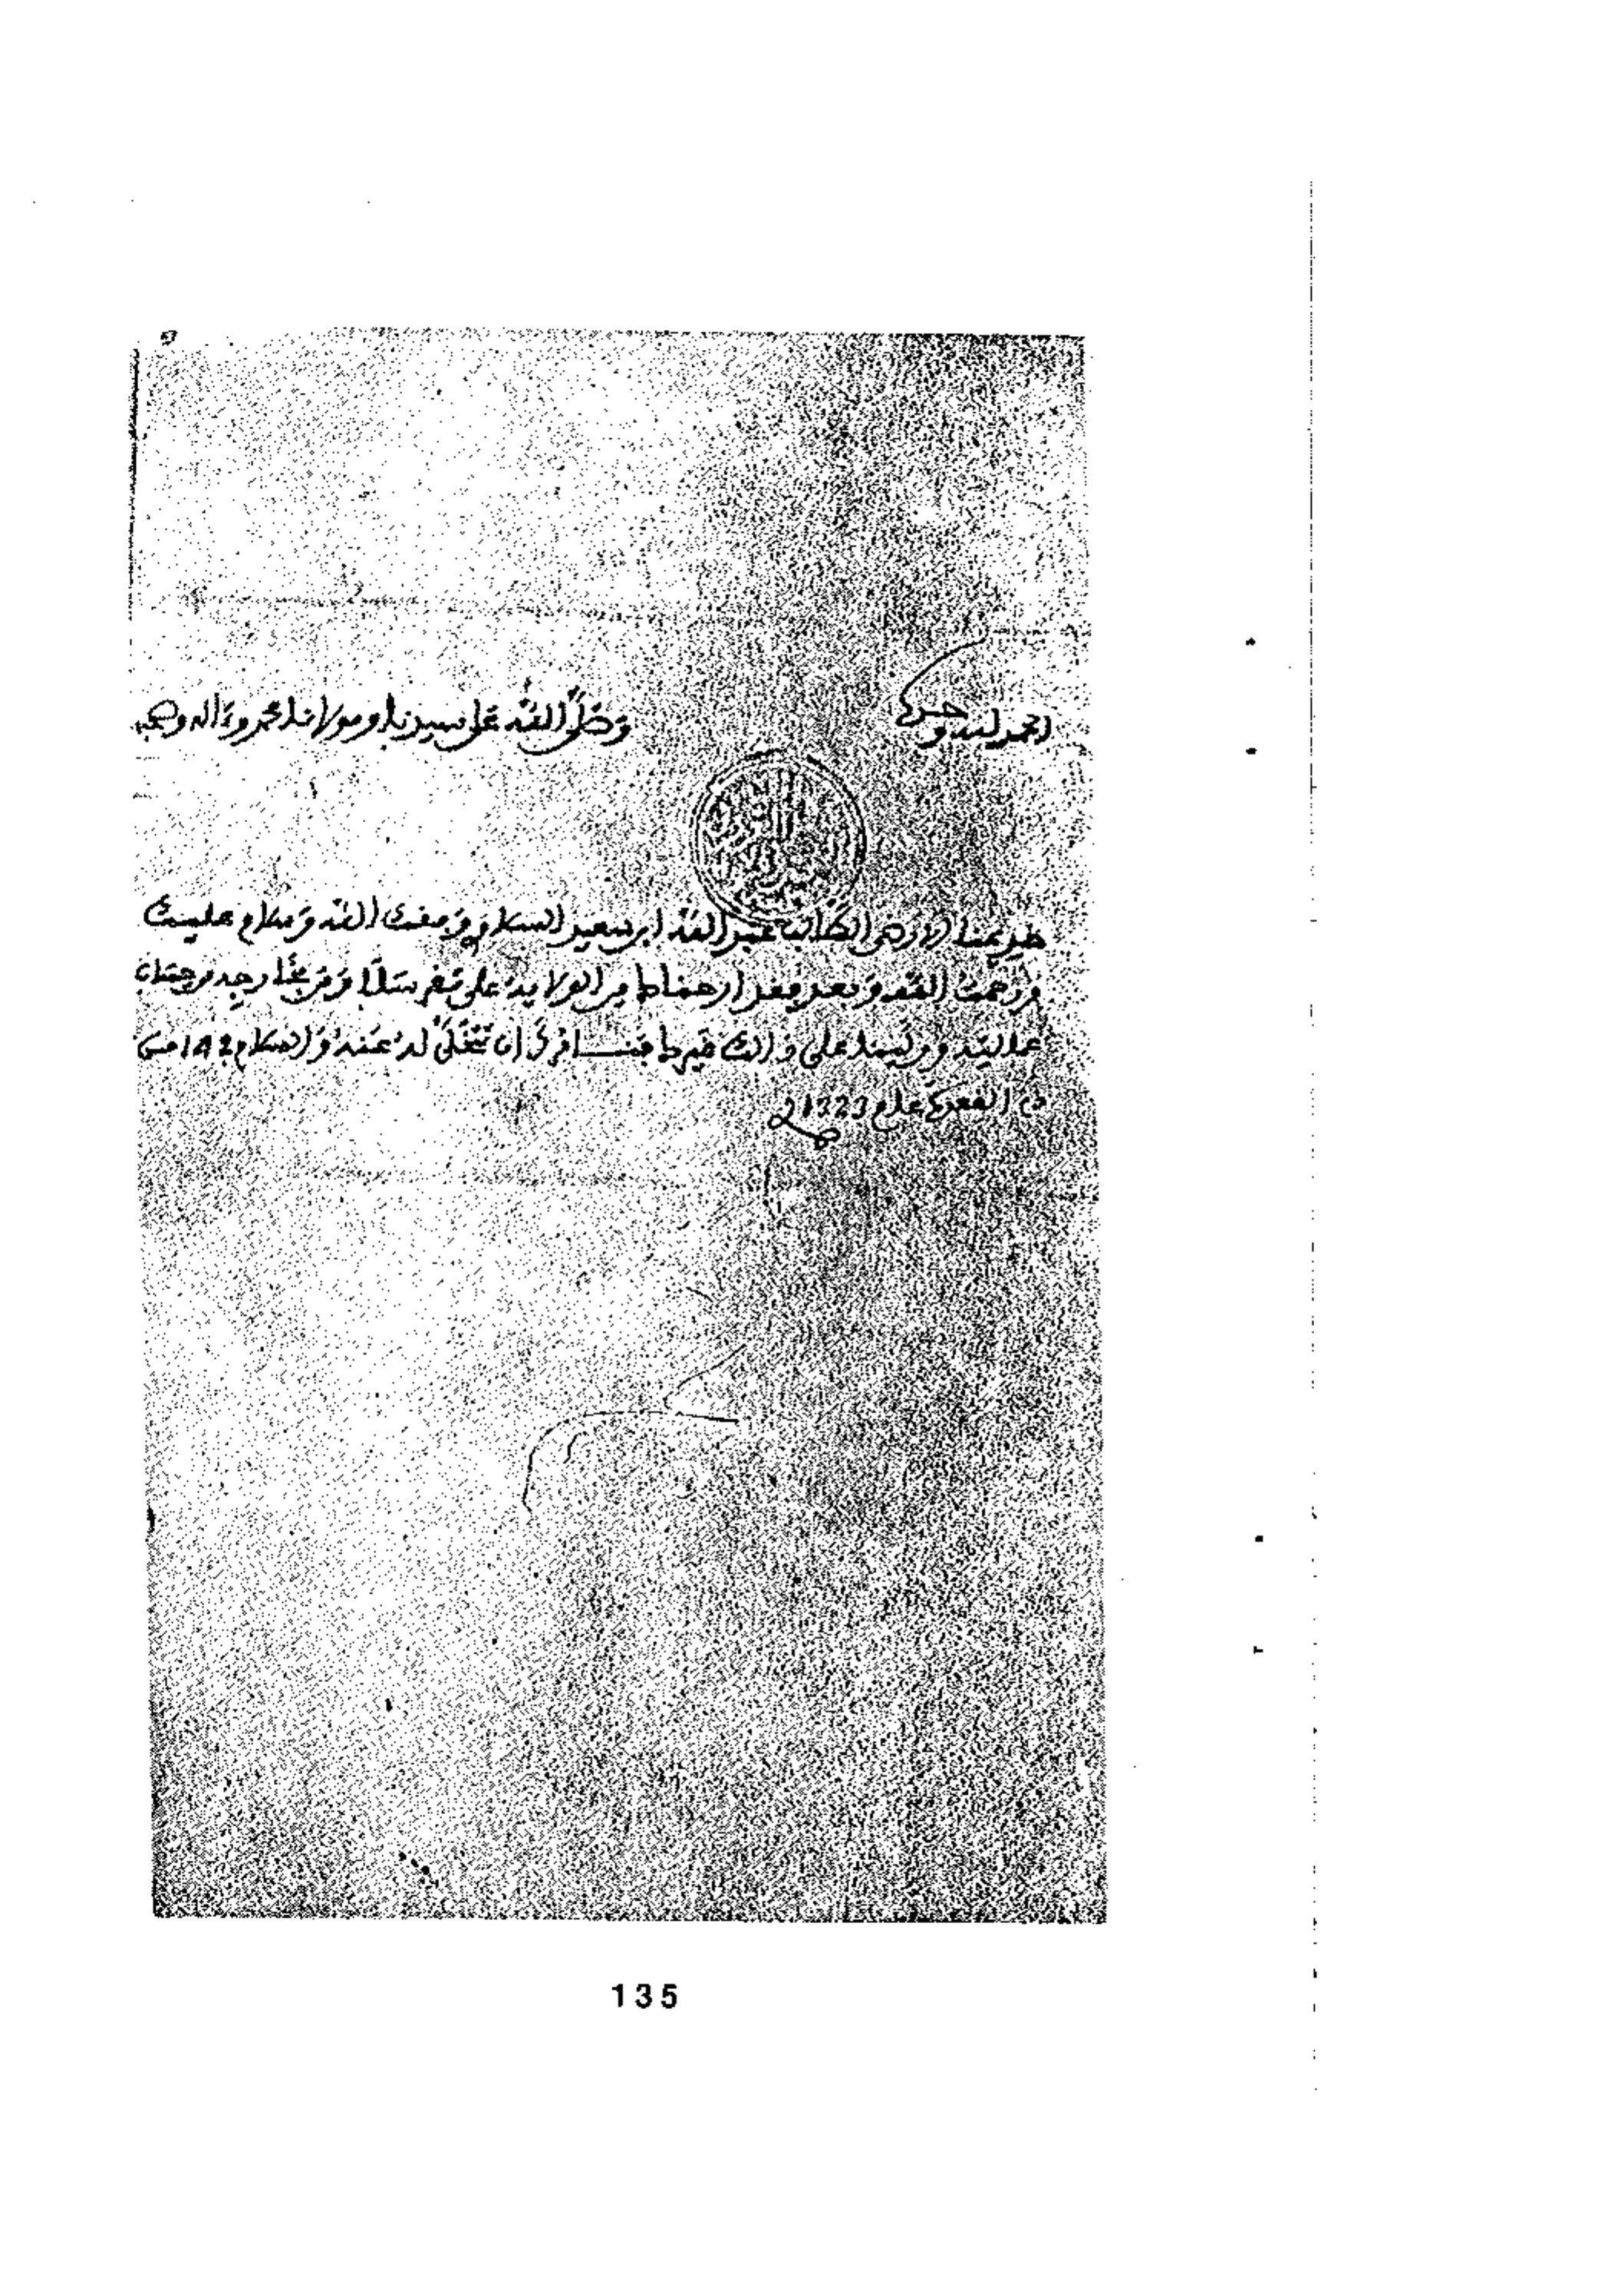 الحمد لله وحده
وصلى الله على سيدنا ومولانا محمد وءاله وصحبه
خديمنا الارضى الطالب عبد الله ابن سعيد السلاوي وفقك الله وسلام عليك
ورحمت الله وبعد فقد ارحناك من الولاية على ثغر سلا
وولينا على ذلك فنامرك ان تتخلى له عنه والسلام
ذي القعدة عام 1323
135